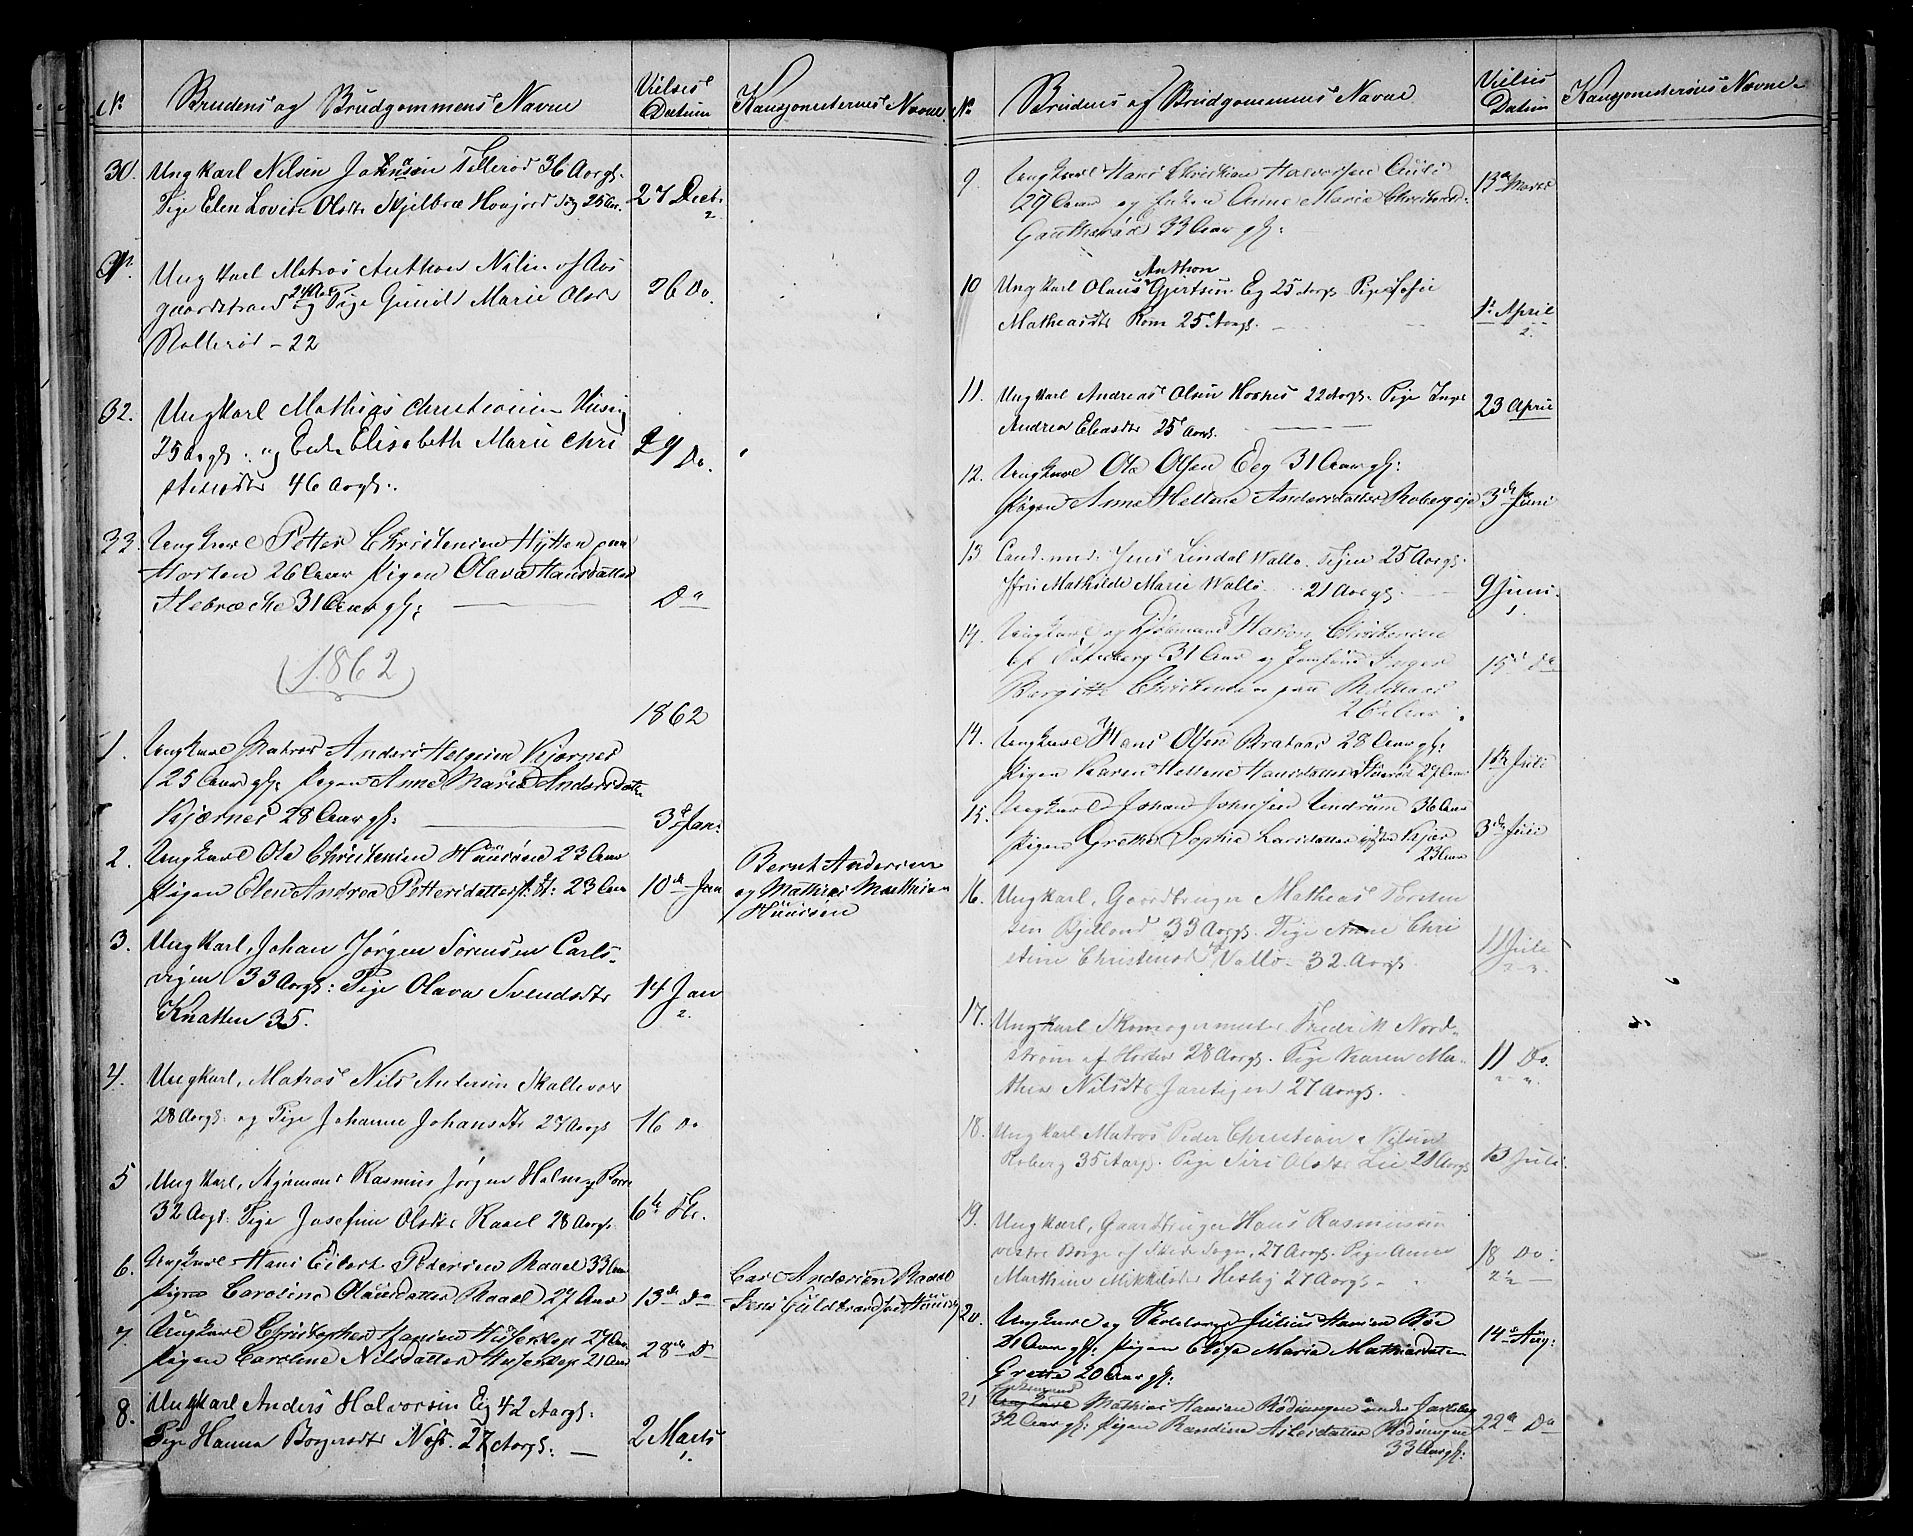 No Brudens og Brudgommens Navne Vielses Datum Kausjonisternes Navne
30. Ungkarl Nilsen Johnsøn Tellerød 36 Aargl.
Pige Elen Lovise Olsdtr 25 Aar. 27 Decb.
31. Ung karl Matros Anthon Nilsen af Aas
gaardstrand 24 Aar og Pige Gunild Marie Olsdtr 26 Do.
Rollerød - 22
32. Ungkarl Mathias Christiansen
25 Aargl. og Enke Elisabeth Marie Chri
stensdtr 46 Aargl. 29 Do.
33. Ungkarl Petter Christensen Hytten paa
Horten 26 Aar Pigen Olava Hansdatter
Flebræcke 31 Aar gl: Do
1862
1862
1. Ungkarl Matros Anders Helgesen Kjærnes
25 Aar gl: Pigen Anne Maria Andersdatter
Kjærnes 28 Aar gl: 3d Jan:
2. Ungkarl Ole Christensen Huusøen 23 Aar
Pigen Elen Andrea Pettersdatter 23 Aar 10de Jan
Bernt Andersen
og Mathias Mathisen
Huusøen
3. Ungkarl, Johan Jørgen Sørensen Carls-
vigen 33 Aargl: Pige Olava Svendsdtr 14 Jan
Knatten 35.
4. Ungkarl, Matros Nils Andersen Skallevold
28 Aargl: og Pige Johanne Johansdtr 27 Aargl 16 Do
5 Ungkarl, Styrmand Rasmus Jørgen Holm
32 Aargl: Pige Josefine Olsdtr Raael 28 Aargl. 6te
6. Ungkarl Hans Eilert Pedersen Raael 33 Aar
Pigen Carolina Olausdatter Raael 27 Aar 13de Do
Carl Andersen Raael
Jens Guldbrandsen
7. Ungkarl Christopher Hansen 27 Aar
Pigen Caroline Nilsdatter 21 Aar 28de Do
8. Ungkarl Anders Halvorsen Eig 42 Aargl:
Pige Hanna Borgersdtr Næs. 27 Aargl: 2 Marts
No Brudens og Brudgommens Navne Vielses Datum Kausjonisternes Navne
9. Ungkarl Hans Christian Halvorsen Auli
27 Aar og Enken Anne Marie Christensd. 13de Marts
33 Aar gl:
10 Ungkarl Olaus Anthon Gjertsen Eg 25 Aargl. Pige Sofie
Matheasdtr Rom 25 Aargl. 1. April
11. Ungkarl Andreas Olsen Hosnes 22 Aargl. Pige Inge
Andrea Eliasdtr 25 Aargl. 23 April
12. Ungkarl Ole Olsen Eeg 31 Aar gl:
Pigen Anne Helene Andersdatter 3de Juni
13 Cand. med: Jens Lindal Wallø. Tejen 25 Aargl.
Jfr: Mathilde Marie Wallø 21 Aargl. 9 Juni
14. Ungkarl og Hakon Christensen
af 31 Aar og Jomfru Inger
Bergitte Christensen paa 15d Do
26 Aar
14. Ungkarl Hans Olsen Brataas 28 Aar gl:
Pigen Karen Hellene Hansdatter 27 Aar Juli
15. Ungkarl Johan Johnsen Undrum 36 Aar
Pigen Grethe Sophie Larsdatter Kjær 3de Juli
23 Aar
16. Ungkarl, Gaardbruger Mathias Torsten
sen Bjelland 33 Aargl. Pige Anne Chri
stine Christensd Vallø 32. Aargl. 11 Juli
17. Ungkarl Skomagermester Fredrik Nord-
strøm af Horten 28 Aargl. Pige Karen Ma-
thea Nilsdtr Jaretigen 27 Aargl. 11 Do.
18. Ungkarl Matros Peder Christian Nilsen
Roberg 35 Aargl. Pige Siri Olsdtr Lie 28 Aargl 13 Juli
19. Ungkarl, Gaardbruger Hans Rasmussen
vestre Borge af Skede Sogn, 27 Aargl. Pige Anne
Marthine Mikkelsdtr Hesby 27 Aargl. 18 Do.
20. Ungkarl og Julius Hansen Bøe
21 Aar gl: Pigen Maria Mathiasdatter 14de Aug:
Grette 20 Aar gl:
21 Enkemand Mathias Hansen Rødningen under Jarlsberg
32 Aar gl: Pigen Randine Rødningen 22de Do
33 Aar gl: